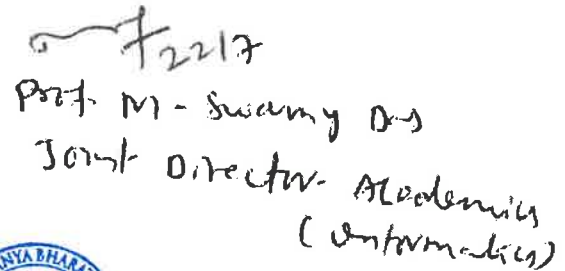 22/7
Prof. M. Swamy Das
Joint Director Academics
(Informatics)
NYA BHARA